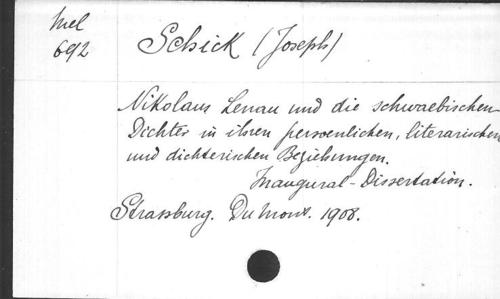 Mel
692
Schick (Joseph)
Nikolaus Lenau und die schwaebischen
Dichter in ihren persoenlichen, literarischen
und dichterischen Beziehungen.
Inaugural-Dissertation.
Strassburg. DuMont. 1908.